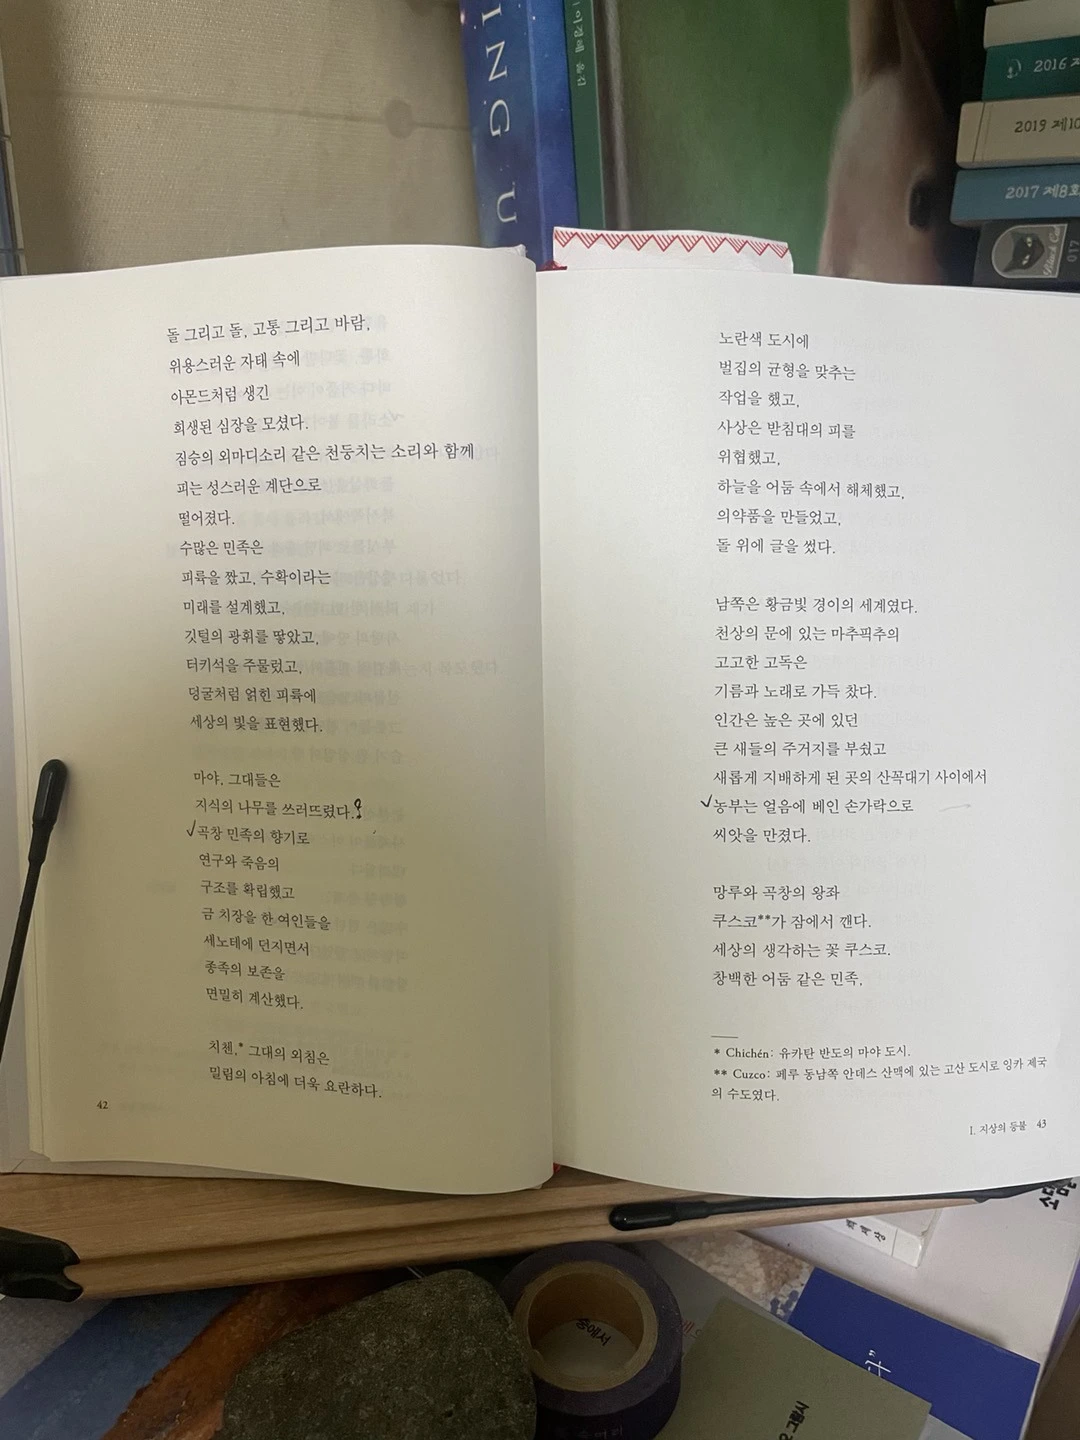 ING U
이경해 옮김
2016 제
2019 제10
2017 제8회
Black Cat
017
돌 그리고 돌, 고통 그리고 바람,
위용스러운 자태 속에
아몬드처럼 생긴
희생된 심장을 모셨다.
짐승의 외마디소리 같은 천둥치는 소리와 함께
피는 성스러운 계단으로
떨어졌다.
수많은 민족은
피륙을 짰고, 수확이라는
미래를 설계했고,
깃털의 광휘를 땋았고,
터키석을 주물렀고,
덩굴처럼 얽힌 피륙에
세상의 빛을 표현했다.
마야, 그대들은
지식의 나무를 쓰러뜨렸다.
곡창 민족의 향기로
연구와 죽음의
구조를 확립했고
금 치장을 한 여인들을
세노테에 던지면서
종족의 보존을
면밀히 계산했다.
치첸,* 그대의 외침은
밀림의 아침에 더욱 요란하다.
42
노란색 도시에
벌집의 균형을 맞추는
작업을 했고,
사상은 받침대의 피를
위협했고,
하늘을 어둠 속에서 해체했고,
의약품을 만들었고,
돌 위에 글을 썼다.
남쪽은 황금빛 경이의 세계였다.
천상의 문에 있는 마추픽추의
고고한 고독은
기름과 노래로 가득 찼다.
인간은 높은 곳에 있던
큰 새들의 주거지를 부쉈고
새롭게 지배하게 된 곳의 산꼭대기 사이에서
농부는 얼음에 베인 손가락으로
씨앗을 만졌다.
망루와 곡창의 왕좌
쿠스코**가 잠에서 깬다.
세상의 생각하는 꽃 쿠스코.
창백한 어둠 같은 민족,
* Chichén: 유카탄 반도의 마야 도시.
** Cuzco: 페루 동남쪽 안데스 산맥에 있는 고산 도시로 잉카 제국
의 수도였다.
I. 지상의 등불 43
중에서